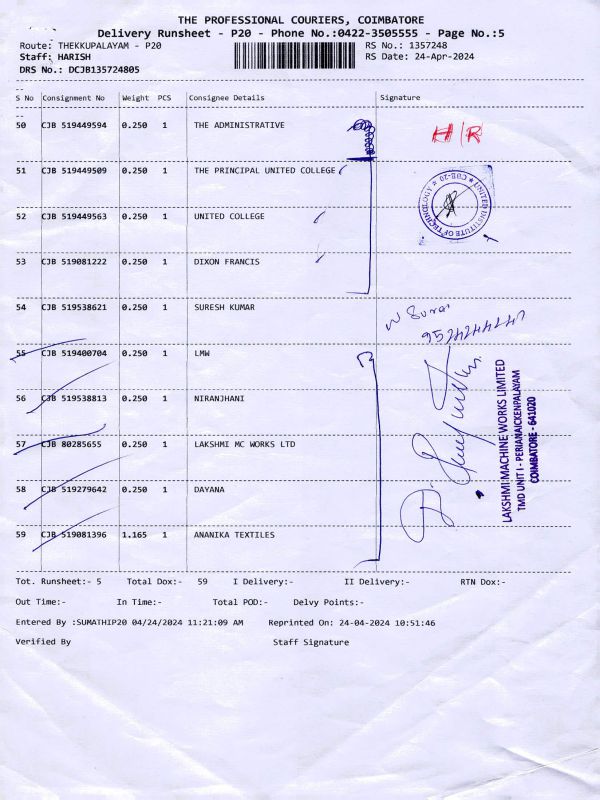 THE PROFESSIONAL COURIERS, COIMBATORE
Delivery Runsheet - P20 - Phone No.:0422-3505555 - Page No.:5
Route: THEKKUPALAYAM - P20 RS No.: 1357248
Staff: HARISH RS Date: 24-Apr-2024
DRS No.: DCJB135724805
S No Consignment No Weight PCS Consignee Details Signature
50 CJB 519449594 0.250 1 THE ADMINISTRATIVE H/R
51 CJB 519449509 0.250 1 THE PRINCIPAL UNITED COLLEGE
UNITED INSTITUTE OF TECHNOLOGY ★ COB-20 ★
52 CJB 519449563 0.250 1 UNITED COLLEGE
53 CJB 519081222 0.250 1 DIXON FRANCIS
54 CJB 519538621 0.250 1 SURESH KUMAR
55 CJB 519400704 0.250 1 LMW
56 CJB 519538813 0.250 1 NIRANJHANI
57 CJB 80285655 0.250 1 LAKSHMI MC WORKS LTD
58 CJB 519279642 0.250 1 DAYANA
59 CJB 519081396 1.165 1 ANANIKA TEXTILES
LAKSHMI MACHINE WORKS LIMITED
TMD UNIT I - PERIANAICKENPALAYAM
COIMBATORE - 641020
Tot. Runsheet:- 5 Total Dox:- 59 I Delivery:- II Delivery:- RTN Dox:-
Out Time:- In Time:- Total POD:- Delvy Points:-
Entered By :SUMATHIP20 04/24/2024 11:21:09 AM Reprinted On: 24-04-2024 10:51:46
Verified By Staff Signature